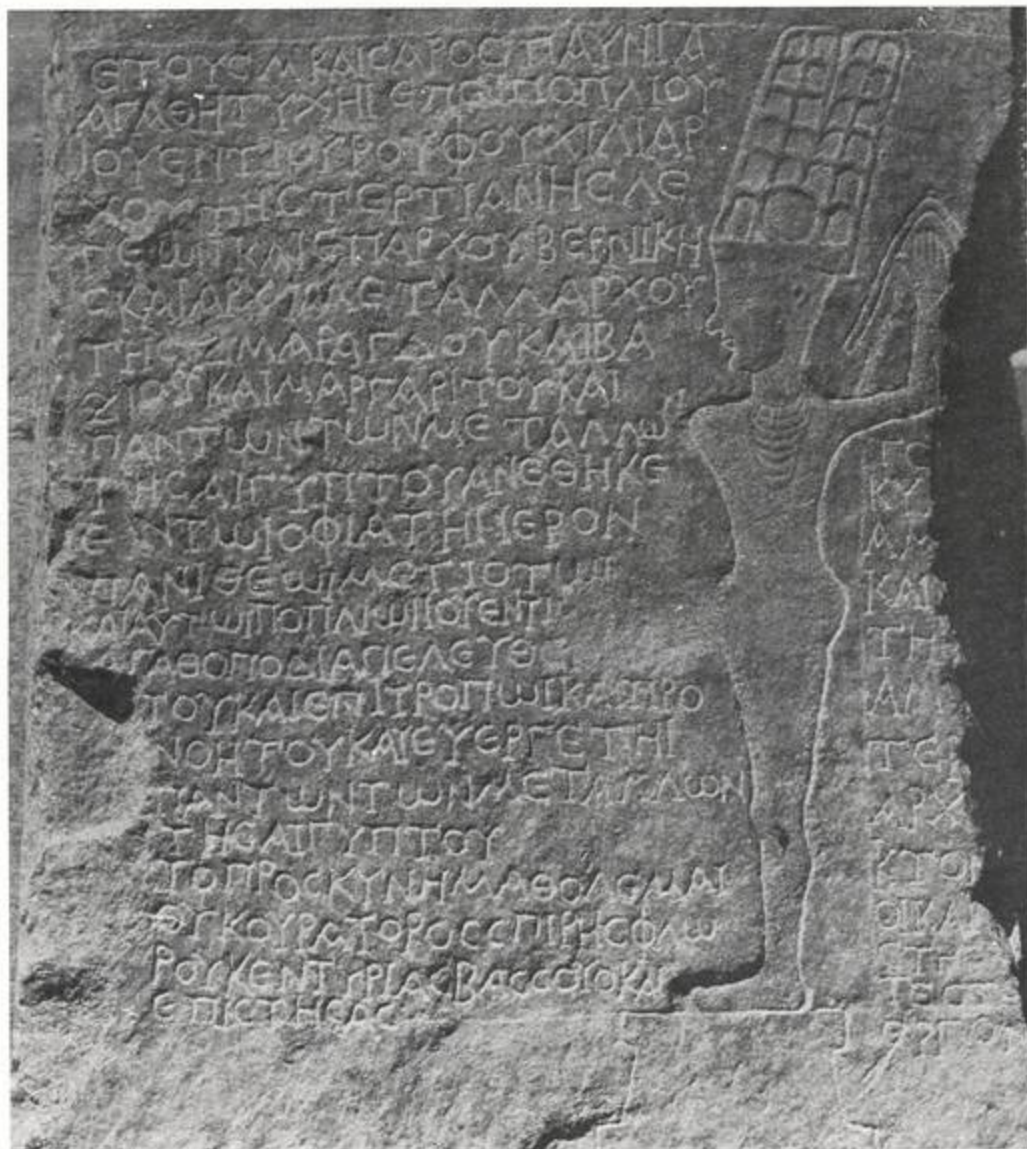 ΕΤΟΥΣ Μ ΚΑΙΣΑΡΟΣ ΠΑΥΝΙ Α
ΑΓΑΘΗ ΤΥΧΗΙ ΕΠΙ ΠΟΠΛΙΟΥ
ΙΟΥΕΝΤΙΟΥ ΡΟΥΦΟΥ ΧΙΛΙΑΡ
ΧΟΥ ΤΗΣ ΤΕΡΤΙΑΝΗΣ ΛΕ
ΓΕΩΝ ΚΑΙ ΕΠΑΡΧΟΥ ΒΕΡΝΙΚΗ
Σ ΚΑΙ ΑΡΧΙΜΕΤΑΛΛΑΡΧΟΥ
ΤΗΣ ΖΜΑΡΑΓΔΟΥ ΚΑΙ ΒΑ
ΖΙΟΥ ΚΑΙ ΜΑΡΓΑΡΙΤΟΥ ΚΑΙ
ΠΑΝΤΩΝ ΤΩΝ ΜΕΤΑΛΛΩ
ΤΗΣ ΑΙΓΥΠΤΟΥ ΑΝΕΘΗΚΕ
ΕΝ ΤΩΙ ΟΦΙΑΤΗΙ ΙΕΡΟΝ
ΠΑΝΙ ΘΕΩΙ ΜΕΓΙΣΤΩΙ
ΚΑΙ ΑΥΤΩΙ ΠΟΠΛΙΩΙ ΙΟΥΕΝΤΙ
ΑΓΑΘΟΠΟΔΙ ΑΠΕΛΕΥΘ
ΤΟΥ ΚΑΙ ΕΠΙΤΡΟΠΩΙ ΚΑΙ ΠΡΟ
ΝΟΗΤΟΥ ΚΑΙ ΕΥΕΡΓΕΤΗΙ
ΠΑΝΤΩΝ ΤΩΝ ΜΕΤΑΛΛΩΝ
ΤΗΣ ΑΙΓΥΠΤΟΥ
ΤΟ ΠΡΟΣΚΥΝΗΜΑ ΘΟΛΕΜΑΙ
ΟΥ ΚΟΥΡΑΤΟΡΟΣ ΣΠΙΡΗΣ ΦΛΩ
ΡΟΥ ΚΕΝΤΥΡΙΑΣ ΒΑΣΣΟΥ Ο ΚΑΙ
ΕΠΙΣΤΗΣΑΣ
ΚΑΙ
ΤΗ
ΑΡΧ
ΚΤΟ
ΕΡΓΟΝ